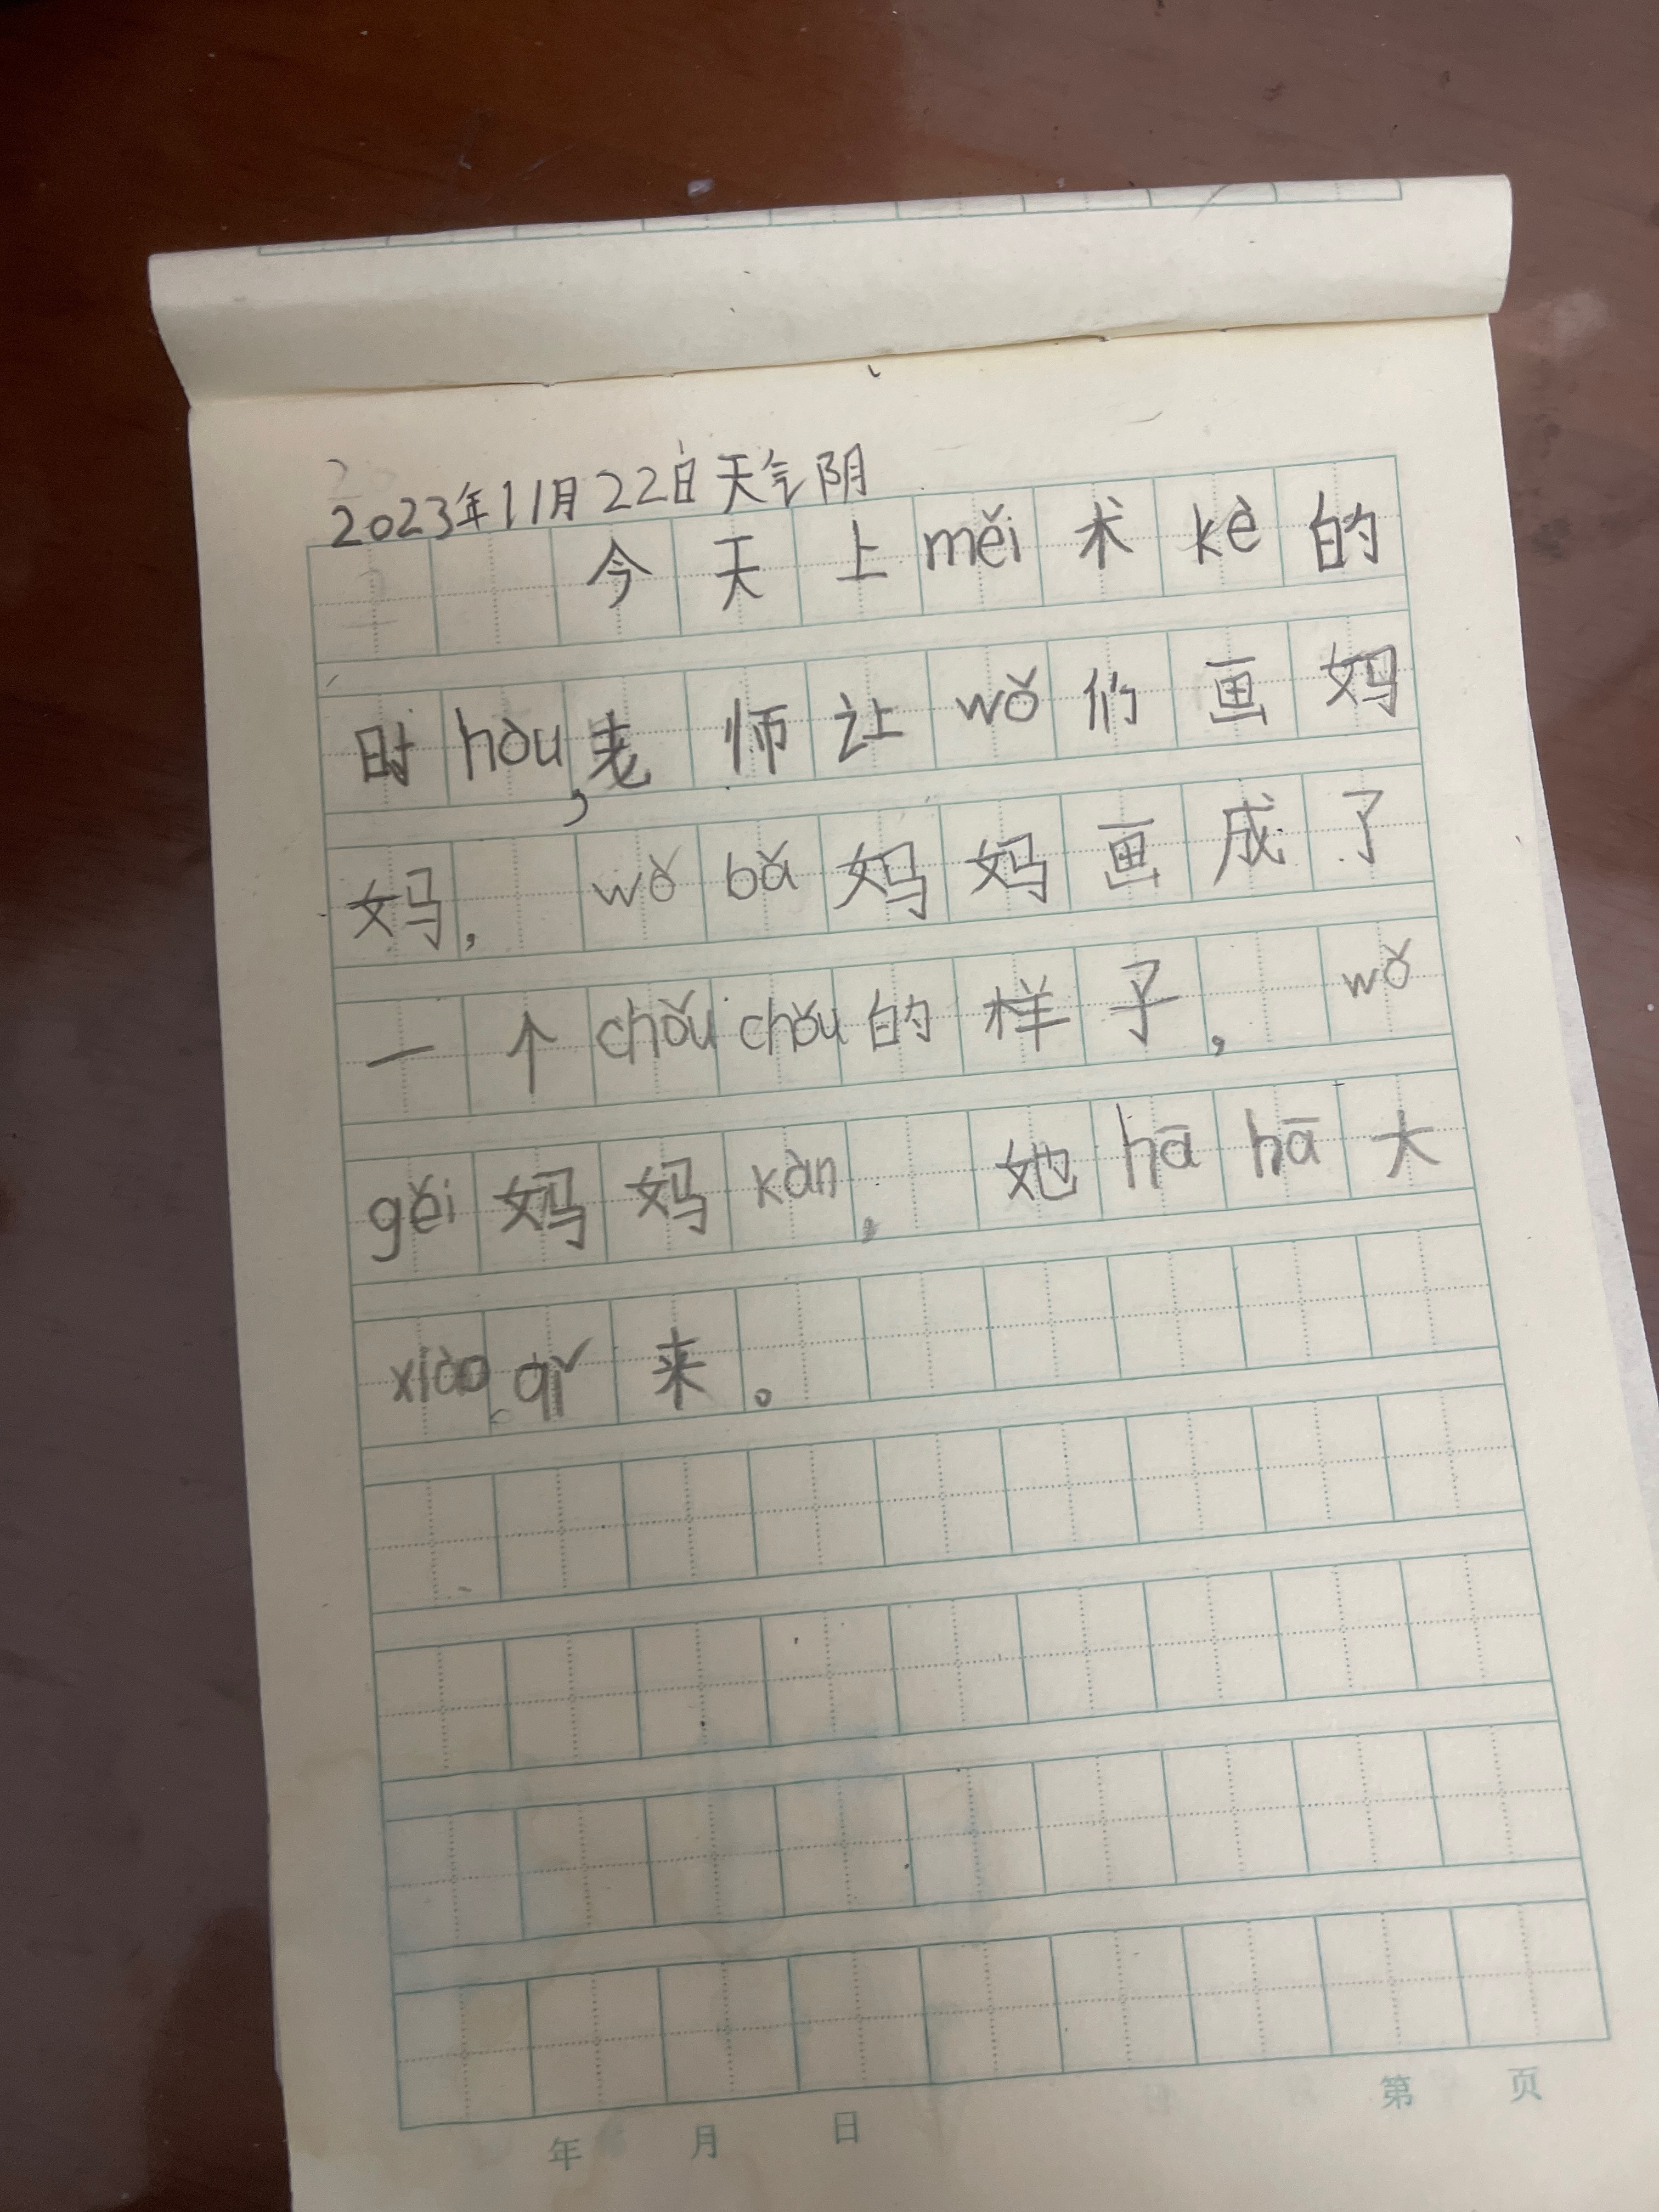 2023年11月22日天气阴
今天上měi术kè的
时hòu,老师让wǒ们画妈
妈,wǒ bǎ妈妈画成了
一个chǒu chǒu的样子,wǒ
gěi妈妈kàn,她hā hā大
xiào qǐ来。
年 月 日 第 页